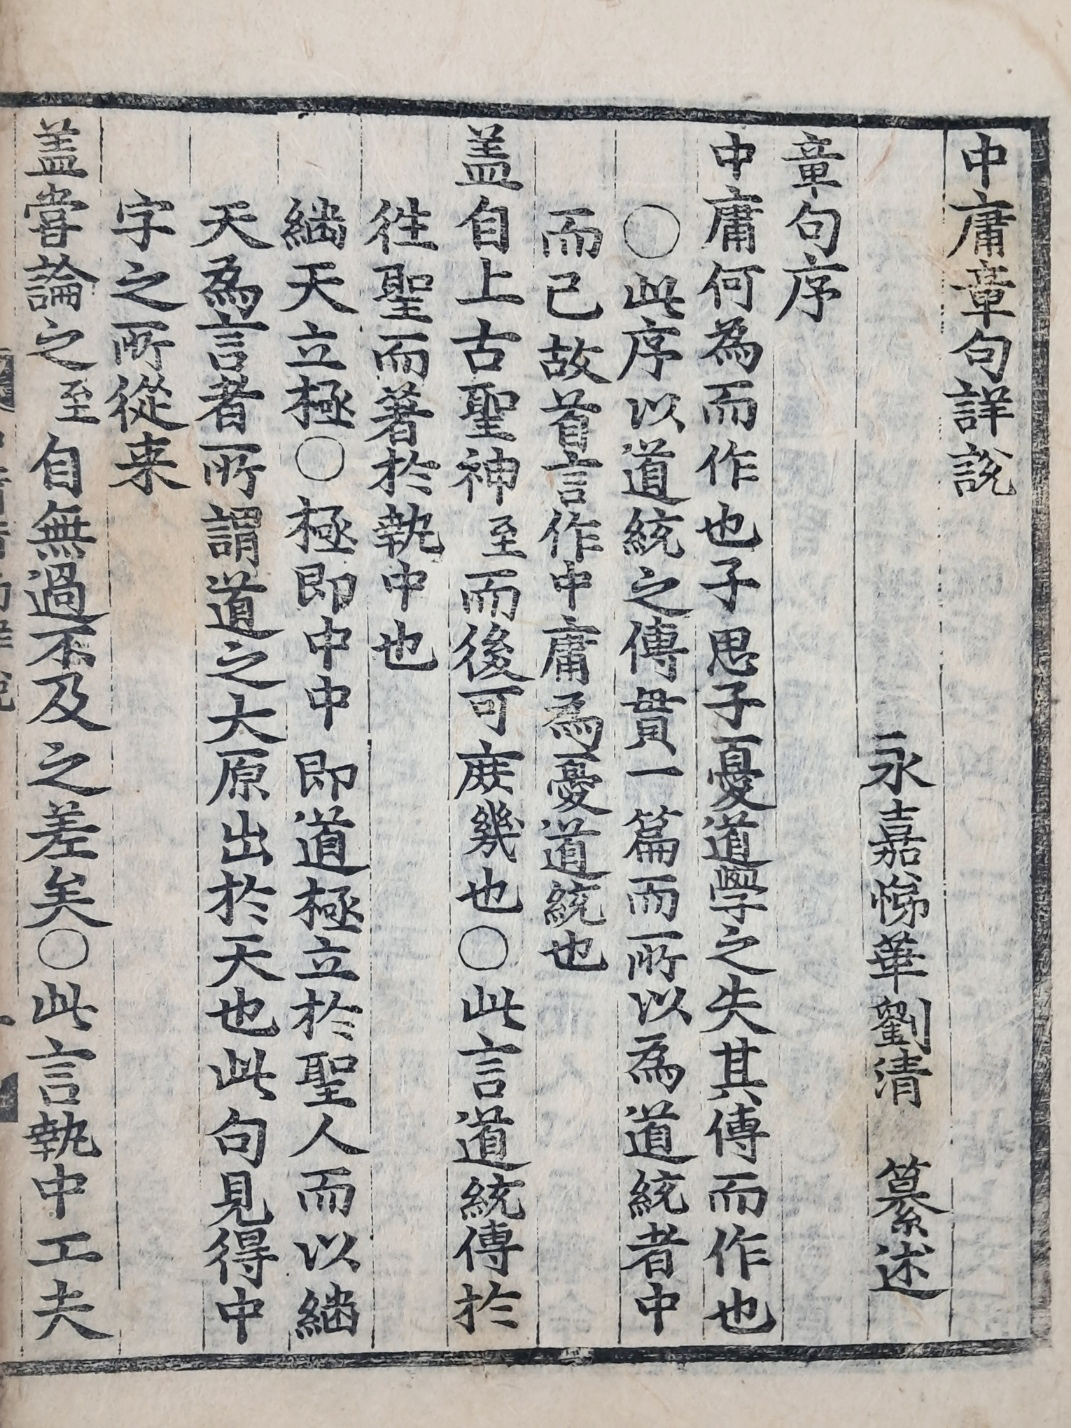 中庸章句詳說
永嘉悌華劉清 纂述
章句序
中庸何為而作也子思子憂道學之失其傳而作也
○此序以道統之傳貫一篇而所以為道統者中
而已故首言作中庸為憂道統也
盖自上古聖神至而後可庶幾也○此言道統傳於
往聖而著於執中也
繼天立極○極即中中即道極立於聖人而以繼
天為言者所謂道之大原出於天也此句見得中
字之所從来
盖嘗論之至自無過不及之差矣○此言執中工夫